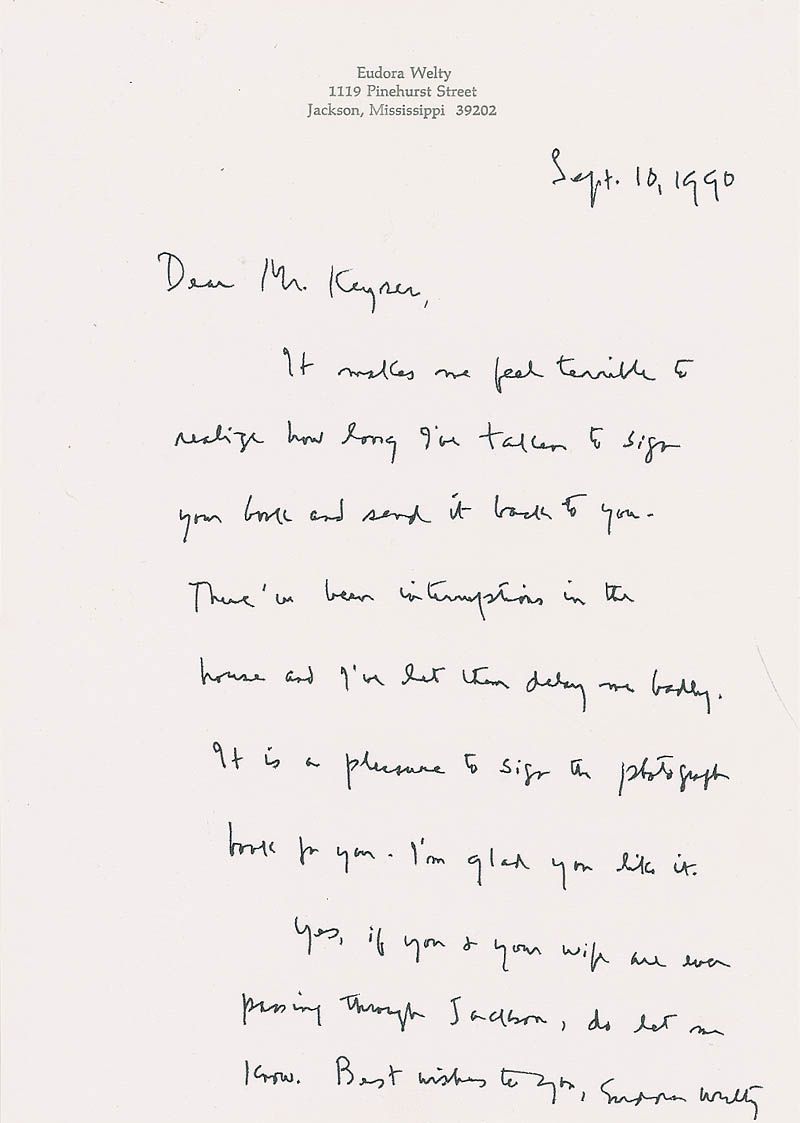 Eudora Welty
1119 Pinehurst Street
Jackson, Mississippi 39202
Sept. 10, 1990
Dear Mr. Keyser,
It makes me feel terrible to
realize how long I've taken to sign
your book and send it back to you.
There've been interruptions in the
house and I've let them delay me badly.
It is a pleasure to sign the photograph
book for you. I'm glad you like it.
Yes, if you & your wife are ever
passing through Jackson, do let me
know. Best wishes to you, Eudora Welty